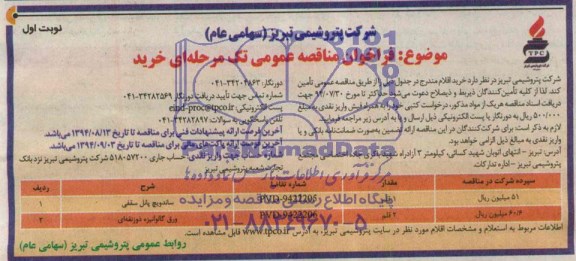 نوبت اول
شرکت پتروشیمی تبریز (سهامی عام)
موضوع: فراخوان مناقصه عمومی تک مرحله‌ای خرید
TPC
شرکت پتروشیمی تبریز در نظر دارد خرید اقلام مندرج در جدول ذیل را از طریق مناقصه عمومی تأمین
کند. لذا از کلیه تأمین‌کنندگان ذیربط و ذیصلاح دعوت می‌شود حداکثر تا مورخ ۹۴/۰۷/۳۰ جهت
دریافت اسناد مناقصه هریک از مواد مذکور، درخواست کتبی خود را به همراه فیش واریز نقدی به مبلغ
۵۰۰/۰۰۰ ریال به پست الکترونیکی ذیل ارسال و یا به آدرس زیر مراجعه فرمایند.
لازم به ذکر است برای شرکت‌کنندگان در این مناقصه ارائه تضمین به صورت ضمانتنامه بانکی و یا
واریز نقدی به مبالغ ذیل الزامی خواهد بود.
آدرس: تبریز – انتهای اتوبان شهید کسائی، کیلومتر ۳ آزادراه
پتروشیمی تبریز – اداره تدارکات.
دورنگار: ۳۴۲۰۳۸۶۳-۰۴۱
شماره تماس جهت تأیید دریافت دورنگار: ۳۴۲۸۲۵۶۹-۰۴۱
پست الکترونیکی: eind-proc@tpco.ir
تلفن پاسخگویی به سوالات: ۳۴۲۸۲۸۸۷-۰۴۱
آخرین فرصت ارائه پیشنهادات فنی برای مناقصه تا تاریخ ۱۳۹۴/۰۸/۱۳ می‌باشد.
تا تاریخ ۱۳۹۴/۰۹/۰۳ می‌باشد.
حساب جاری ۵۱۸۰۵۷۲۰۰ شرکت پتروشیمی تبریز نزد بانک
ردیف شرح شماره تقاضا مقدار سپرده شرکت در مناقصه
۱ ساندویچ پانل سقفی PVD-9422205 ۵۱ میلیون ریال
۲ ورق گالوانیزه ذوزنقه‌ای PVD-9422206 ۲ قلم ۶۰/۶ میلیون ریال
اطلاعات مربوط به استعلام و مشخصات اقلام مورد نظر در سایت پتروشیمی تبریز، به آدرس www.tpco.ir قابل مشاهده است.
روابط عمومی پتروشیمی تبریز (سهامی عام)
پایگاه اطلاع رسانی مناقصه و مزایده
۰۲۱-۸۸۳۴۹۶۷۰-۵